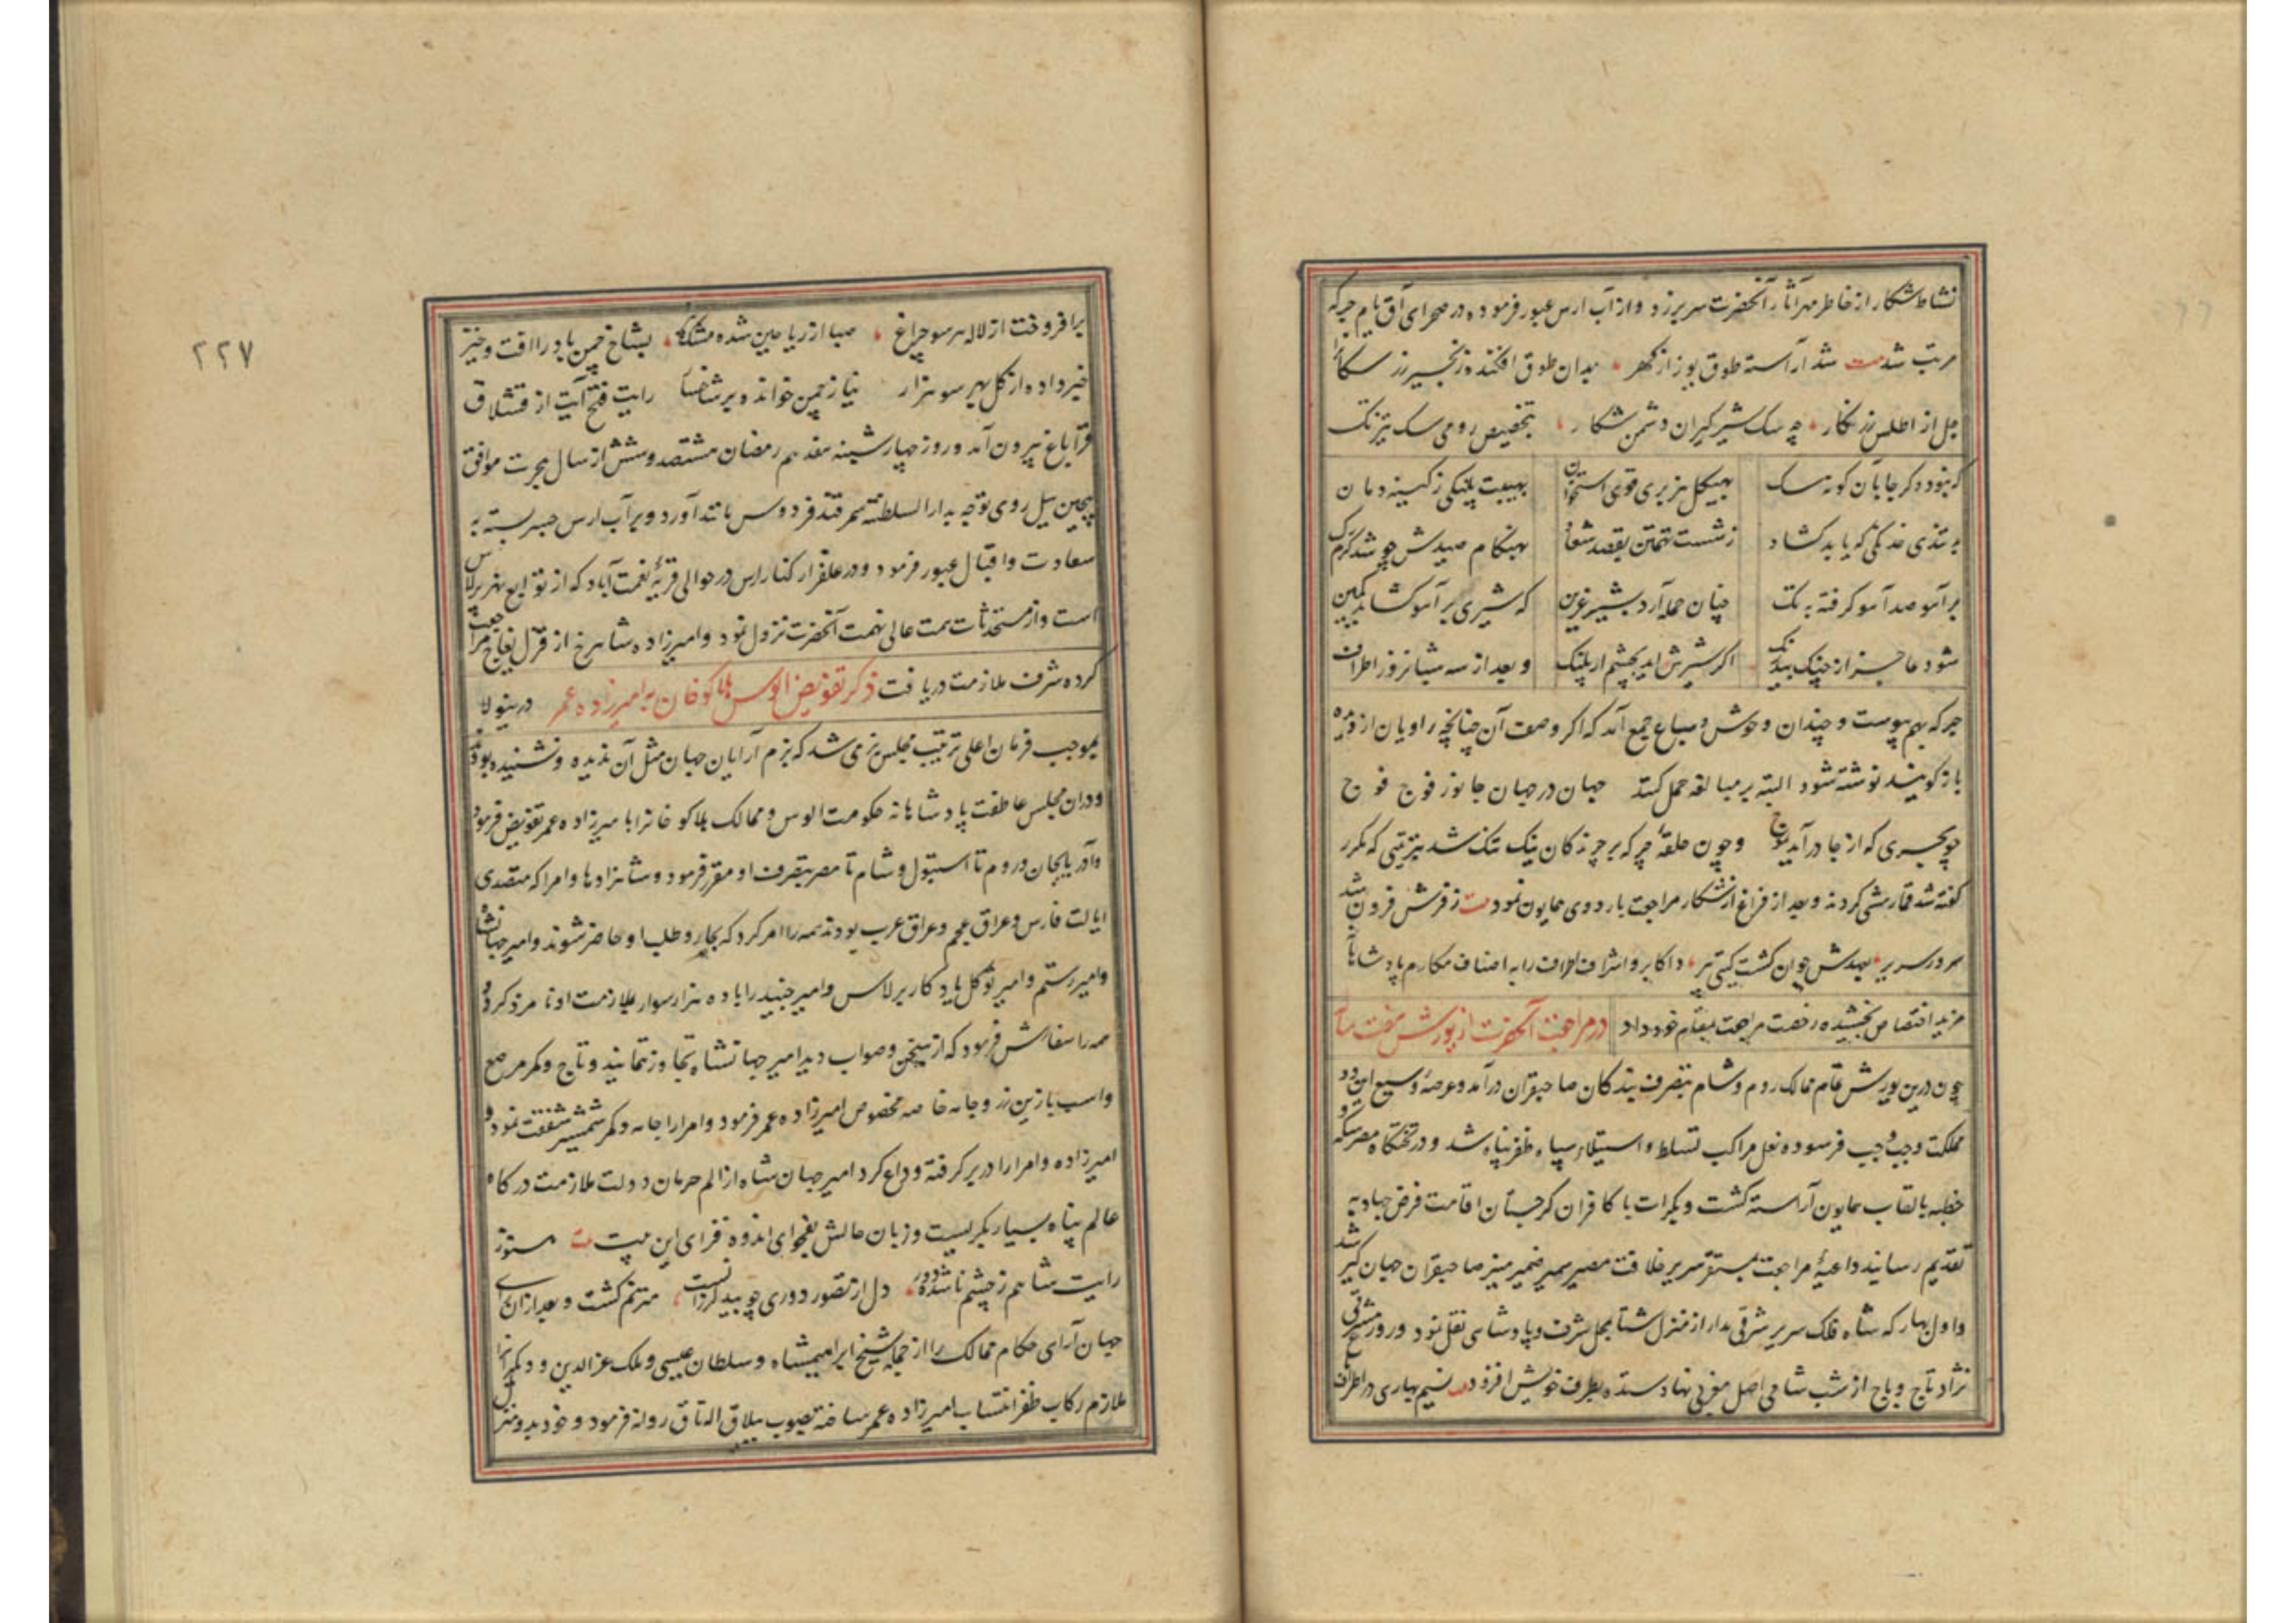 نشاط شکار از خاطر مهر آثار آنحضرت سر برزد و از آب ارس عبور فرموده در صحرای آق بام جرکه
مرتب شد بیت شد آراسته طوق یوز از کهر بدان طوق افکنده زنجیر زر سکانرا
جل از اطلس زرنکار چه سک شیر کیران دشمن شکار بتخصیص رومی سک تیزتک
که نبود دکر جا بآن کونه سک بهیکل هزبری قوی استخوان بهیبت پلنکی ز کینه دمان
به تندی خدنکی که یابد کشاد ز شست تهمتن بقصد بهنکام صیدش چو شد کرم رک
بر آهو صد آهو کرفته به تک چنان حمله آرد بشیر عرین که شیری بر آهو کشاید کمین
شود عاجز از چنک اکر شیرش آید بچشم ار پلنک و بعد از سه شبانروز اطراف
جرکه بهم پیوست و چندان وحوش و سباع جمع آمد که اکر وصف آن چنانچه راویان از
باز کویند نوشته شود البته بر مبالغه حمل کنند جهان در جهان جانور فوج فوج
چو بحری که از جا درآید بموج و چون حلقهٔ جرکه بر چرندکان نیک تنک شد بترتیبی که مکرر
کفته شد قمارمشی کردند و بعد از فراغ از شکار مراجعت باردوی همایون نمود بیت ز فرش فزون شد
سرور سریر بعهدش جوان کشت کیتی پیر و اکابر و اشراف اطراف را به اصناف مکارم پادشاهانه
مزید اختصاص بخشیده رخصت مراجعت بمقام خود داد در مراجعت آنحضرت از یورش هفت ساله
چون درین یورش تمام ممالک روم و شام بتصرف بندکان صاحبقران درآمد و عرصهٔ وسیع این دو
مملکت وجب وجب فرسوده نعل مراکب تسلط و استیلاء سپاه ظفرپناه شد و در تختکاه مصر سکه و
خطبه بالقاب همایون آراسته کشت و بکرات با کافران کرجستان اقامت فرض جهاد به
تقدیم رسانید داعیهٔ مراجعت بمستقر سریر خلافت مصیر سمیر ضمیر منیر صاحبقران جهان کیر شد
و اول بهار که شاه فلک سریر شرقی مدار از منزل شتا بمحل شرف و پادشاهی نقل نمود و روز مشرقی
نژاد تاج و باج از شب شامی اصل مغربی نهاد ستده بطرف خویش افزود بیت نسیم بهاری در اطراف باغ
برافروخت از لاله هر سو چراغ صبا از ریاحین شده مشکبار بشاخ چمن باد را افت و خیز
خبر داده از کل بهر سو هزار نیاز چمن خوانده بر شاخسار رایت فتح آیت از قشلاق
قراباغ بیرون آمد و روز چهارشینه هفدهم رمضان هشتصد و شش از سال هجرت موافق
پیچین ییل روی توجه بدارالسلطنه سمرقند فردوس مانند آورد و بر آب ارس جسر بسته به
سعادت و اقبال عبور فرمود و در علفزار کنار ارس در حوالی قریهٔ نعمت آباد که از توابع نهر برلاس
است و از مستحدثات همت عالی نهمت آنحضرت نزول نمود و امیرزاده شاهرخ از قزل یغاج مراجعت
کرده شرف ملازمت دریافت ذکر تفویض الوس هلاکو خان به امیرزاده عمر درینولا
بموجب فرمان اعلی ترتیب مجلس بزمی شد که بزم آرایان جهان مثل آن ندیده و نشنیده بودند
و دران مجلس عاطفت پادشاهانه حکومت الوس و ممالک هلاکو خانرا بامیرزاده عمر تفویض فرمود
و آذربایجان و روم تا استنبول و شام تا مصر بتصرف او مقرر فرمود و شاهزادها و امرا که متصدی
ایالت فارس و عراق عجم و عراق عرب بودند همه را امر کرد که بجار و طلب او حاضر شوند و امیر جهانشاه
و امیر رستم و امیر توکل یادکار برلاس و امیر جنید را با ده هزار سوار بملازمت او نامزد کرد و
همه را سفارش فرمود که از سخن و صواب دید امیر جهانشاه تجاوز ننمایند و تاج و کمر مرصع
و اسب با زین زر و جامه خاصه مخصوص امیرزاده عمر فرمود و امرا را جامه و کمر شمشیر شفقت نمود و
امیرزاده و امرا را در بر کرفته وداع کرد امیر جهان شاه از الم حرمان دولت ملازمت درکاه
عالم پناه بسیار بکریست و زبان حالش بفحوای اندوه فزای این بیت بیت هنوز
رایت شاهم ز چشم ناشده دور دل از تصور دوری چو بید لرزانست مترنم کشت و بعد ازان رای
جهان آرای حکام ممالک را از جمله شیخ ابراهیمشاه و سلطان عیسی و ملک عزالدین و دیکرانرا
ملازم رکاب ظفر انتساب امیرزاده عمر ساخته بصوب ییلاق اله تاق روانه فرمود و خود بدو منزل
۲۲۷